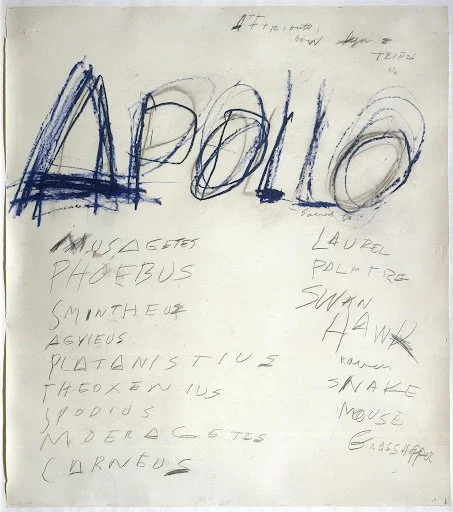 bow
TRIPOD
APOLLO
Sacred to
MUSAGETES
PHOEBUS
SMINTHEUS
AGYIEUS
PLATANISTIUS
THEOXENIUS
SPODIUS
MOERAGETES
CARNEUS
LAUREL
PALM TREE
SWAN
HAWK
raven
SNAKE
MOUSE
GRASSHOPPER